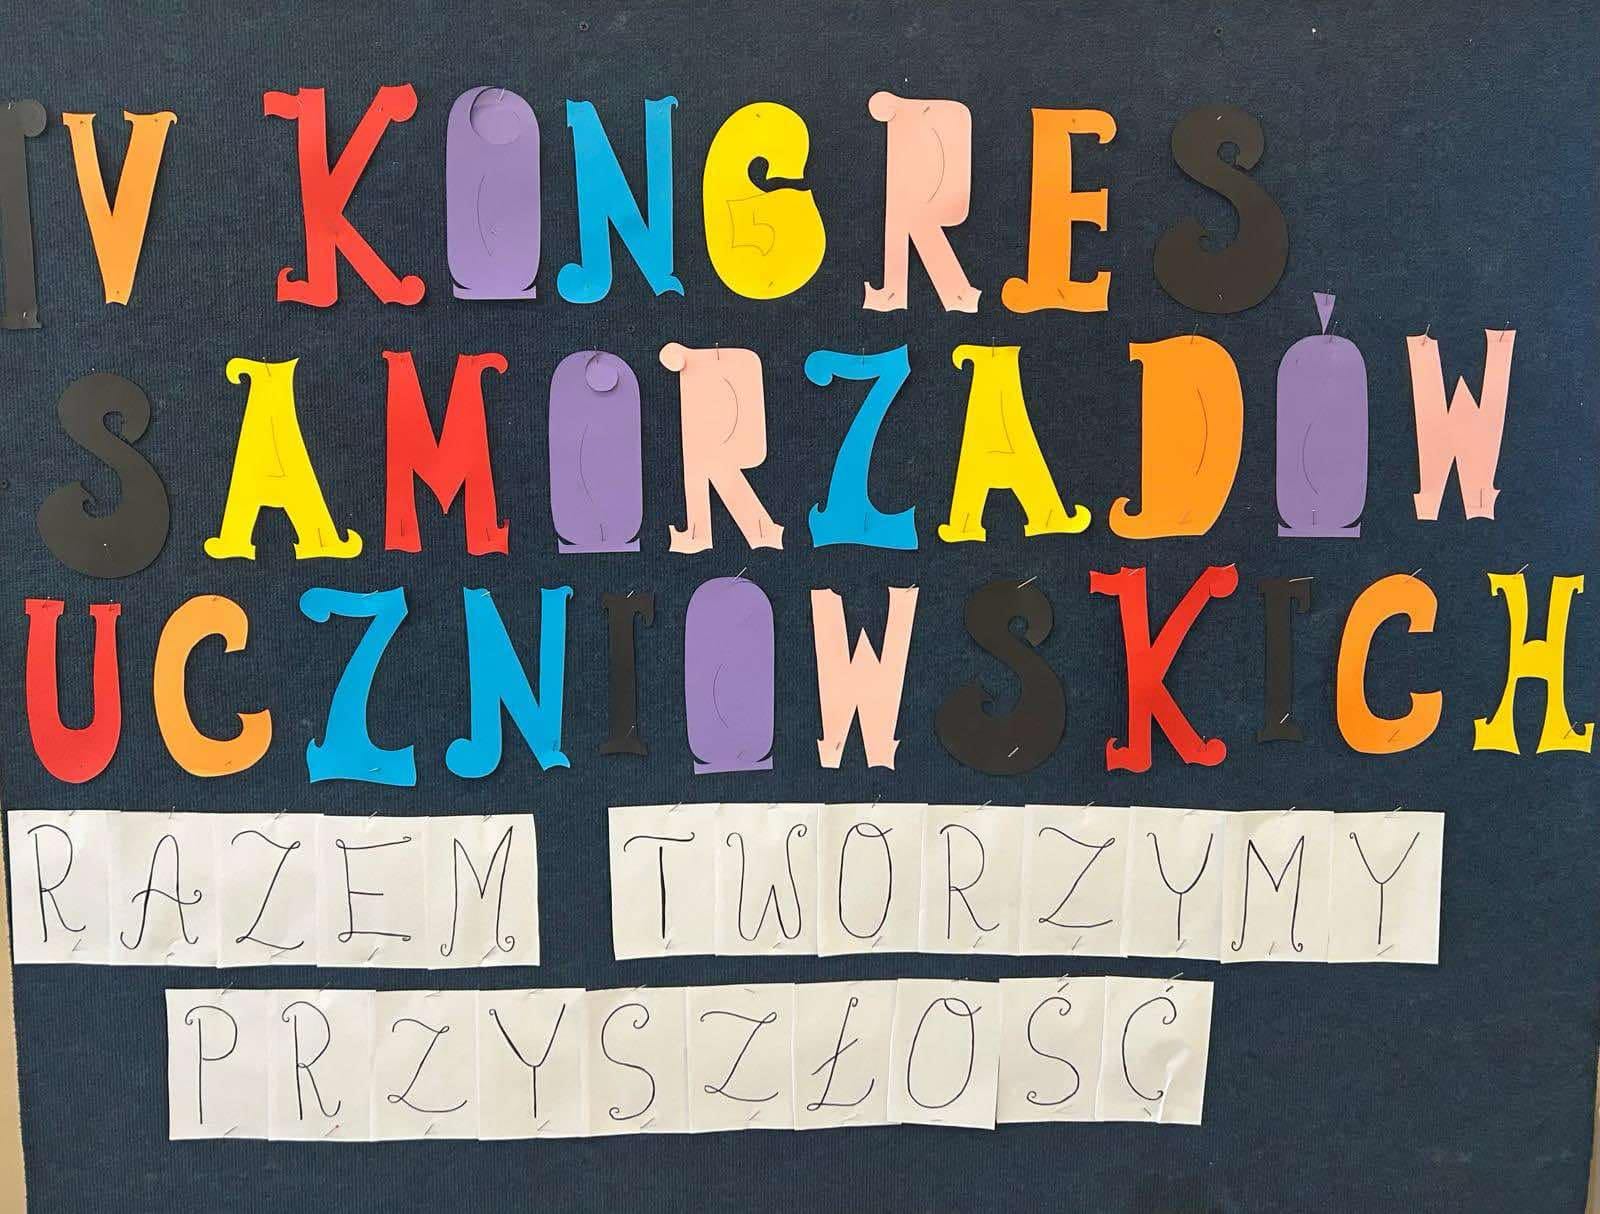 IV KONGRES
SAMORZADÓW
UCZNIOWSKICH
RAZEM TWORZYMY
PRZYSZŁOŚĆ